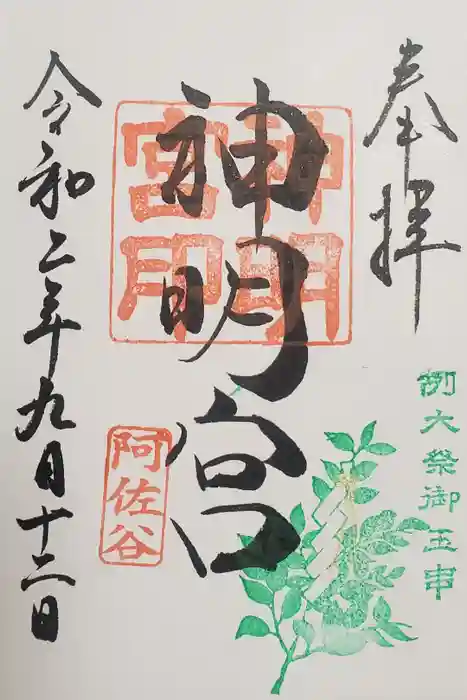 奉拝
例大祭御玉串
神明宮
神明宮印
阿佐谷
令和二年九月十二日